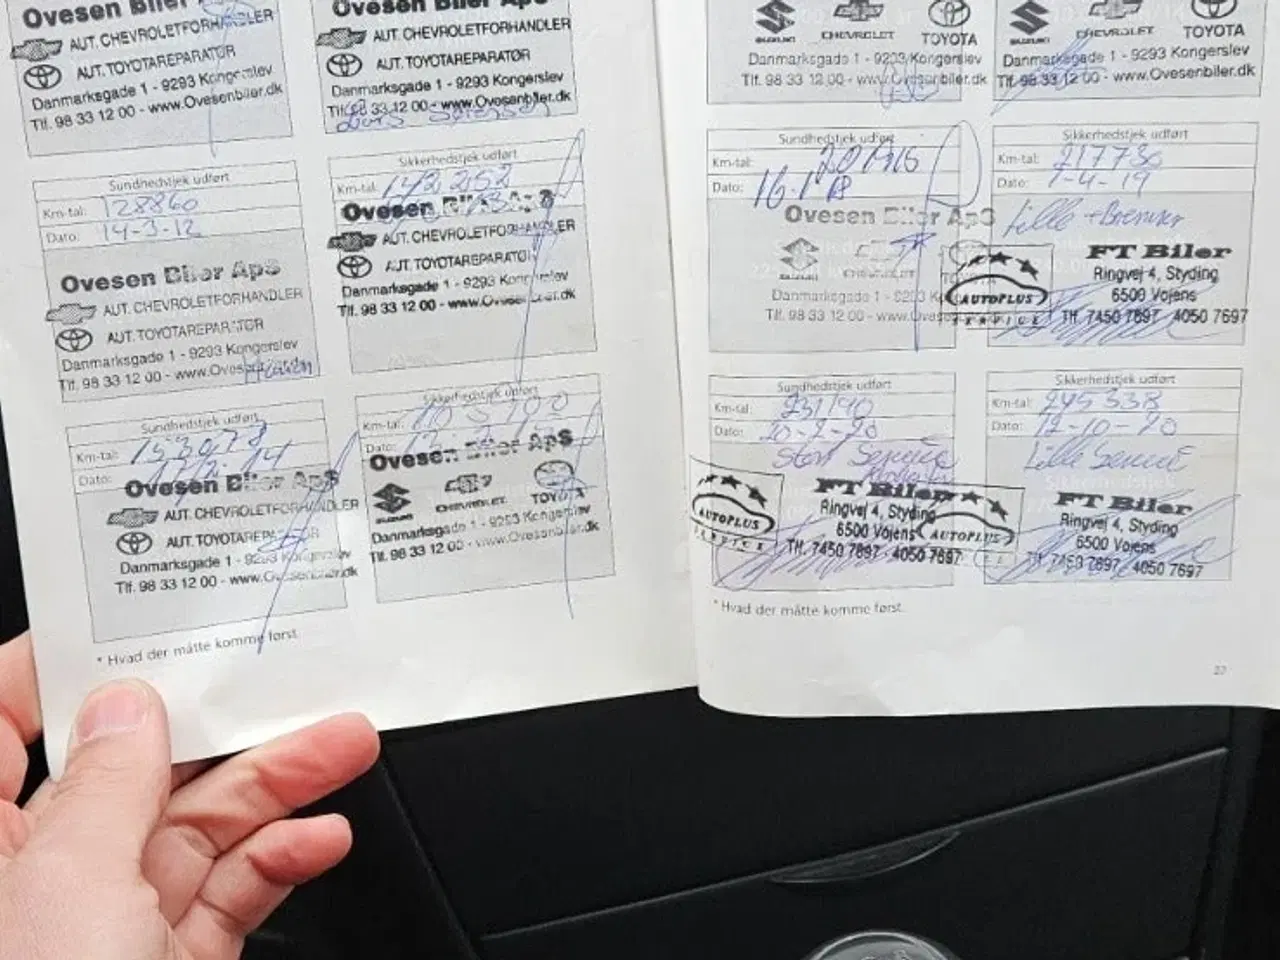 Ovesen Biler
AUT. CHEVROLETFORHANDLER
AUT. TOYOTAREPARATØR
Danmarksgade 1 - 9293 Kongerslev
Tlf. 98 33 12 00 - www.Ovesenbiler.dk
Ovesen Biler ApS
AUT. CHEVROLETFORHANDLER
AUT. TOYOTAREPARATØR
Danmarksgade 1 - 9293 Kongerslev
Tlf. 98 33 12 00 - www.Ovesenbiler.dk
Sundhedstjek udført
Km-tal: 128860
Dato: 14-3-12
Ovesen Biler ApS
AUT. CHEVROLETFORHANDLER
AUT. TOYOTAREPARATØR
Danmarksgade 1 - 9293 Kongerslev
Tlf. 98 33 12 00 - www.Ovesenbiler.dk
Sikkerhedstjek udført
Km-tal: 142252
Ovesen Biler ApS
AUT. CHEVROLETFORHANDLER
AUT. TOYOTAREPARATØR
Danmarksgade 1 - 9293 Kongerslev
Tlf. 98 33 12 00 - www.Ovesenbiler.dk
Sundhedstjek udført
Km-tal:
Dato:
Ovesen Biler ApS
AUT. CHEVROLETFORHANDLER
AUT. TOYOTAREPARATØR
Danmarksgade 1 - 9293 Kongerslev
Tlf. 98 33 12 00 - www.Ovesenbiler.dk
Sikkerhedstjek udført
Km-tal:
Dato:
Ovesen Biler ApS
SUZUKI CHEVROLET TOYOTA
Danmarksgade 1 - 9293 Kongerslev
Tlf. 98 33 12 00 - www.Ovesenbiler.dk
* Hvad der måtte komme først.
SUZUKI CHEVROLET TOYOTA
Danmarksgade 1 - 9293 Kongerslev
Tlf. 98 33 12 00 - www.Ovesenbiler.dk
SUZUKI CHEVROLET TOYOTA
Danmarksgade 1 - 9293 Kongerslev
Tlf. 98 33 12 00 - www.Ovesenbiler.dk
Sundhedstjek udført
Km-tal:
Dato: 16-1-18
Ovesen Biler ApS
Danmarksgade 1 - 9293
Tlf. 98 33 12 00 - www.Ovesen
Sikkerhedstjek udført
Km-tal: 217730
Dato: 1-4-19
Lille + Bremser
AUTOPLUS
SERVICE
FT Biler
Ringvej 4, Styding
6500 Vojens
Tlf. 7450 7697 4050 7697
Sundhedstjek udført
Km-tal: 231190
Dato: 20-2-20
Stort Service
AUTOPLUS
SERVICE
FT Biler
Ringvej 4, Styding
6500 Vojens
Tlf. 7450 7697 4050 7697
Sikkerhedstjek udført
Km-tal: 245338
Dato: 12-10-20
Lille Service
AUTOPLUS
FT Biler
Ringvej 4, Styding
6500 Vojens
Tlf. 7450 7697 4050 7697
* Hvad der måtte komme først.